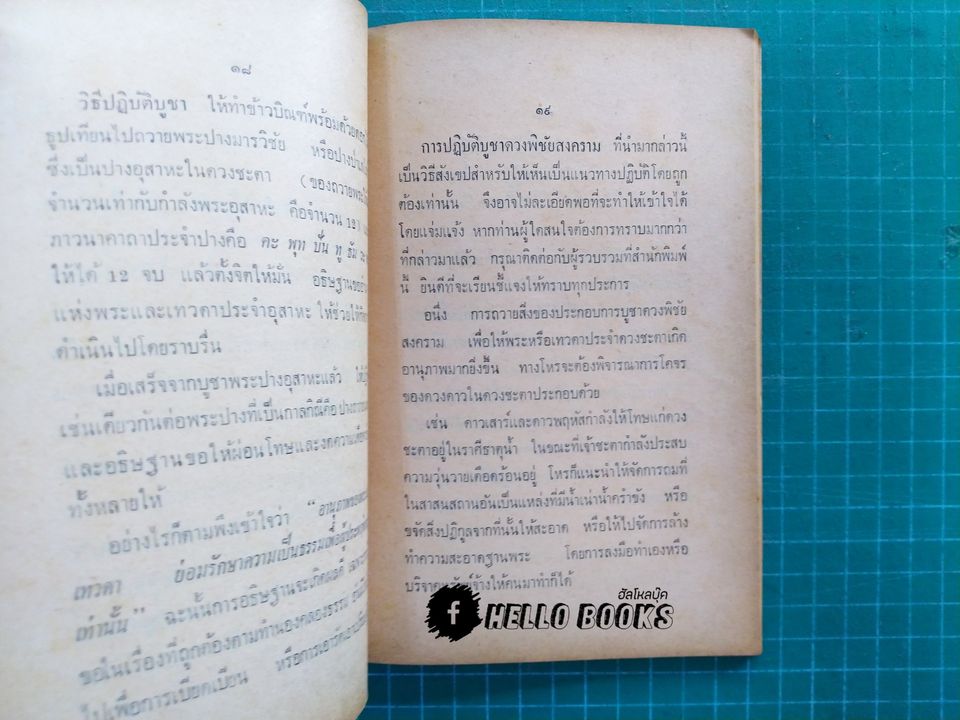 ๑๘
วิธีปฏิบัติบูชา ให้ทำข้าวบิณฑ์พร้อมด้วย
ธูปเทียนไปถวายพระปางมารวิชัย หรือปาง
ซึ่งเป็นปางอุสาหะในดวงชะตา (ของถวายพระ
จำนวนเท่ากับกำลังพระอุสาหะ คือจำนวน 12
ภาวนาคาถาประจำปางคือ คะ พุท ปัน ทู ธัม วะ
ให้ได้ 12 จบ แล้วตั้งจิตให้มั่น อธิษฐานขอ
แห่งพระและเทวดาประจำอุสาหะ ให้ช่วยให้
ดำเนินไปโดยราบรื่น
เมื่อเสร็จจากบูชาพระปางอุสาหะแล้ว
เช่นเดียวกันต่อพระปางที่เป็นกาลกิณีคือ
และอธิษฐานขอให้ผ่อนโทษและงดความ
ทั้งหลายให้
อย่างไรก็ตามพึงเข้าใจว่า "อานุภาพของ
เทวดา ย่อมรักษาความเป็นธรรมเพื่อผู้
เท่านั้น" ฉะนั้นการอธิษฐานจะเกิดผลดี
ขอในเรื่องที่ถูกต้องตามทำนองคลองธรรม
ไปเพื่อการเบียดเบียน หรือการ
๑๙
การปฏิบัติบูชาดวงพิชัยสงคราม ที่นำมากล่าวนี้
เป็นวิธีสังเขปสำหรับให้เห็นเป็นแนวทางปฏิบัติโดยถูก
ต้องเท่านั้น จึงอาจไม่ละเอียดพอที่จะทำให้เข้าใจได้
โดยแจ่มแจ้ง หากท่านผู้ใดสนใจต้องการทราบมากกว่า
ที่กล่าวมาแล้ว กรุณาติดต่อกับผู้รวบรวมที่สำนักพิมพ์
นี้ ยินดีที่จะเรียนชี้แจงให้ทราบทุกประการ
อนึ่ง การถวายสิ่งของประกอบการบูชาดวงพิชัย
สงคราม เพื่อให้พระหรือเทวดาประจำดวงชะตาเกิด
อานุภาพมากยิ่งขึ้น ทางโหรจะต้องพิจารณาการโคจร
ของดวงดาวในดวงชะตาประกอบด้วย
เช่น ดาวเสาร์และดาวพฤหัสกำลังให้โทษแก่ดวง
ชะตาอยู่ในราศีธาตุน้ำ ในขณะที่เจ้าชะตากำลังประสบ
ความวุ่นวายเดือดร้อนอยู่ โหรก็แนะนำให้จัดการถมที่
ในสาสนสถานอันเป็นแหล่งที่มีน้ำเน่าน้ำครำขัง หรือ
ขจัดสิ่งปฏิกูลจากที่นั้นให้สะอาด หรือให้ไปจัดการล้าง
ทำความสะอาดฐานพระ โดยการลงมือทำเองหรือ
บริจาคทรัพย์จ้างให้คนมาทำก็ได้
ฮัลโหลบุ๊ค
f HELLO BOOKS